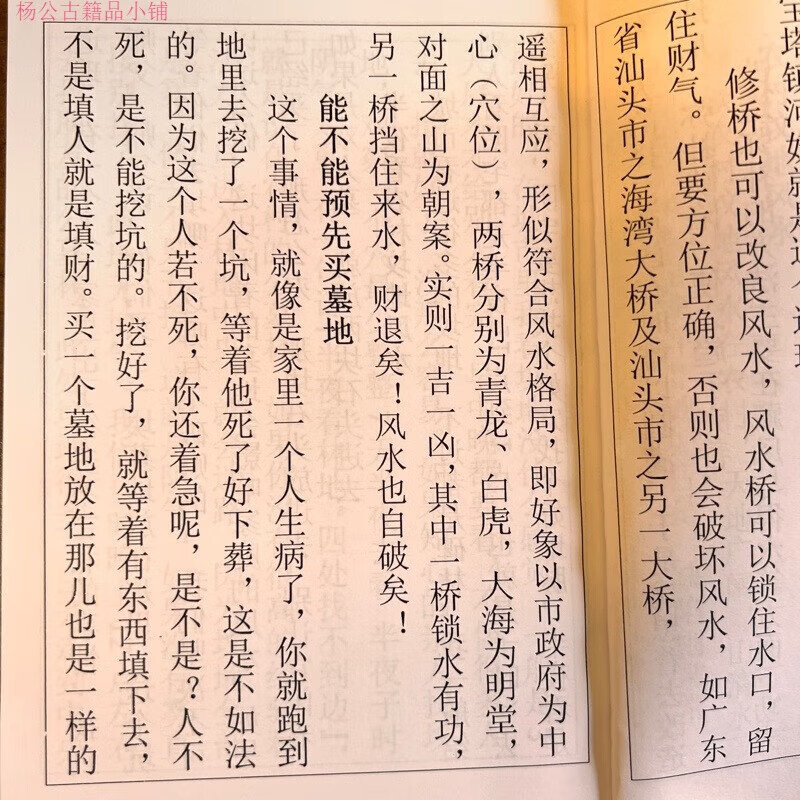 杨公古籍品小铺
宝塔镇河妖就是这个道理
修桥也可以改良风水，风水桥可以锁住水口，留
住财气。但要方位正确，否则也会破坏风水，如广东
省汕头市之海湾大桥及汕头市之另一大桥，
遥相互应，形似符合风水格局，即好象以市政府为中
心（穴位），两桥分别为青龙、白虎，大海为明堂，
对面之山为朝案。实则一吉一凶，其中一桥锁水有功，
另一桥挡住来水，财退矣！风水也自破矣！
能不能预先买墓地
这个事情，就像是家里一个人生病了，你就跑到
地里去挖了一个坑，等着他死了好下葬，这是不如法
的。因为这个人若不死，你还着急呢，是不是？人不
死，是不能挖坑的。挖好了，就等着有东西填下去，
不是填人就是填财。买一个墓地放在那儿也是一样的